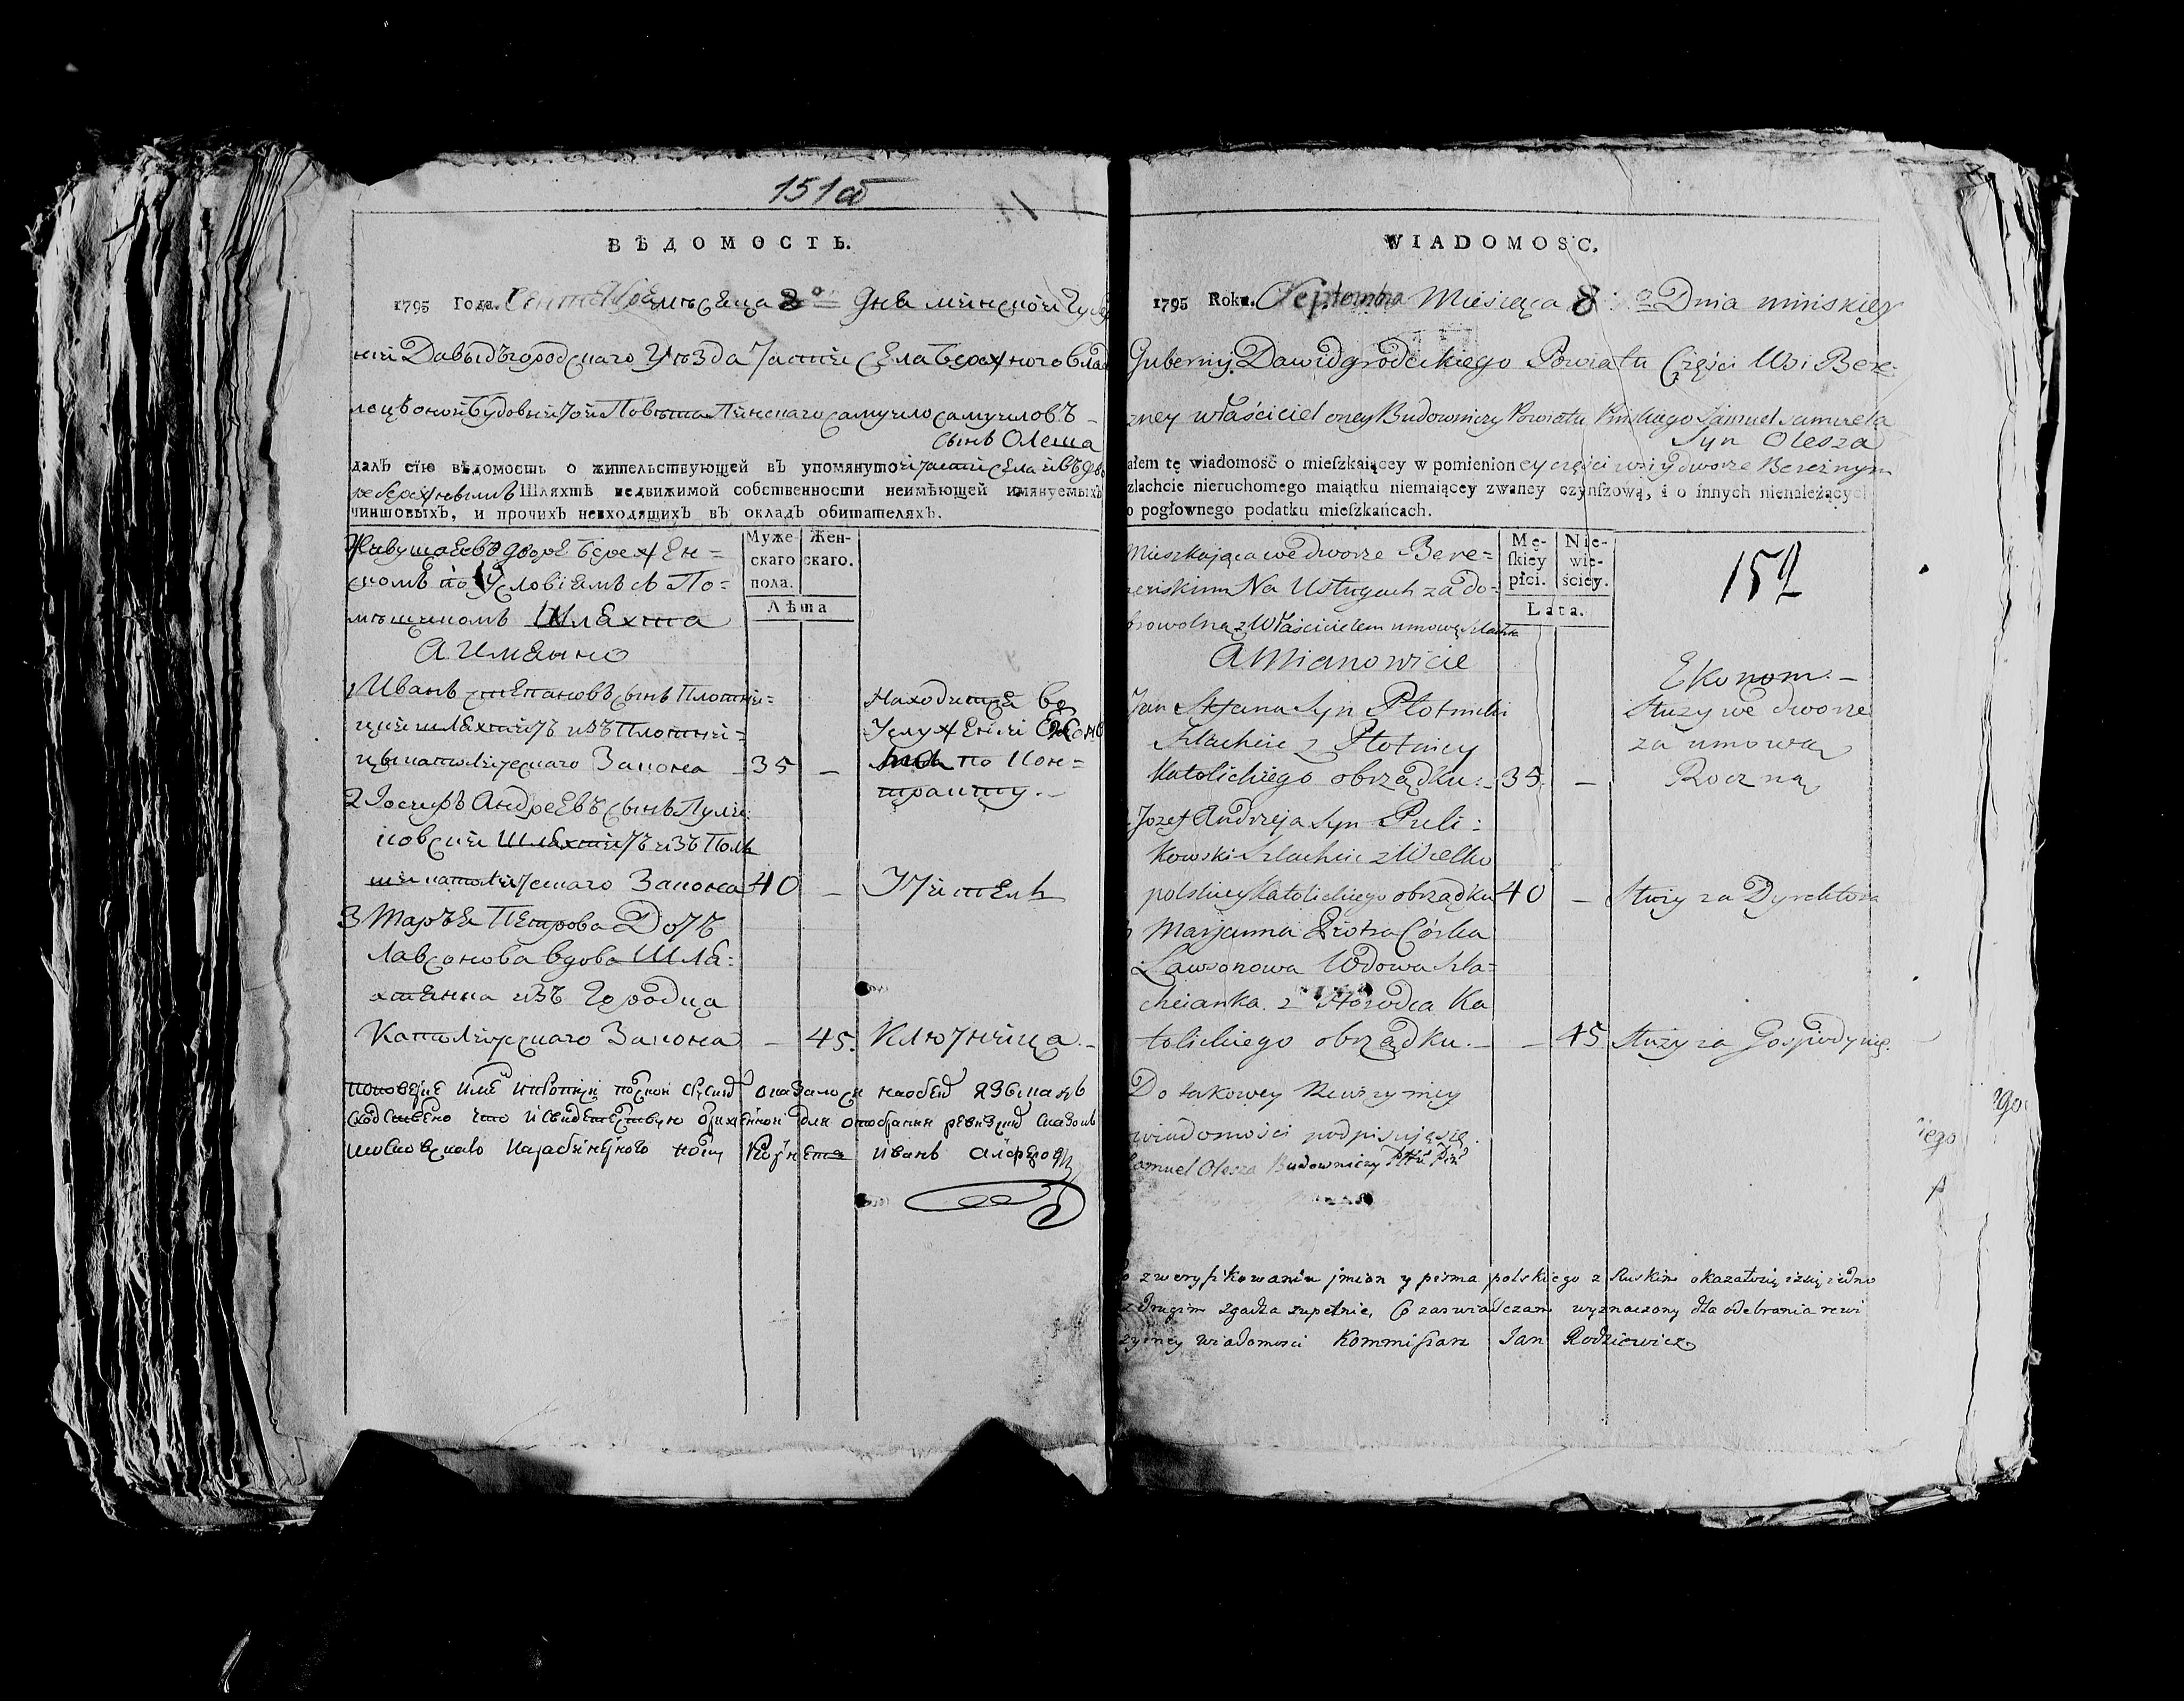 151 об
ВѢДОМОСТЬ.
1795 Года. Сентебря мѣсяца 8го Дня минской Губер
ніи Давыдъгородскаго Уѣзда Части Села Бережного влад
лецъ оной Будовничей Повѣта Пинскаго самуило самуиловъ
сынъ Олеша
далъ сїю вѣдомость о жительствующей въ упомянутои части села и въ дво
ре бережнымъ Шляхтѣ недвижимой собственности неимѣющей имянуемыхъ
чиншовыхъ, и прочихъ невходящихъ въ окладъ обитателяхъ.
Живущая въ дворе Бережен=
скомъ по Условіямъ съ По=
мещикомъ Шляхта
А имянно
Муже- Жен-
скаго скаго.
пола.
Лѣта
1 Иванъ степановъ сынъ Плотни=
цкий шляхтичъ изъ Плотни=
цы католическаго Закона 35 —
Находится во
Услужении Еконо
по Кон=
тракту. —
2 Іосифъ Андреевъ сынъ Пули
ковский Шляхтичъ изъ Поль
ши католическаго Закона 40 — Учитель
3 Марья Петрова Дочь
Лавсонова вдова Шля=
хтянка изъ Городца
Католическаго Закона — 45. Ключница. —
оказалося наобеих языкахъ
Корнетъ иванъ
WIADOMOSC.
1795 Roku. Septembra Miesiąca 8: o Dnia minskiey
Gubernij Dawidgrodeckiego Powiatu Części Wsi Bere
zney właściciel oney Budowniczy Powiatu Pinskiego Samuel Samuela
Syn Olesza
ałem tę wiadomość o mieſzkaiącey w pomienioney części wsi y dworze Bereznym
zlachcie nieruchomego maiątku niemaiącey zwaney czynſzową, i o innych nienależących
o pogłownego podatku mieſzkańcach.
Mieszkająca we dworze Bere=
zenskim Na Usługach za do=
browolną z Właścicielem umową szlachta
A Mianowicie
Mę- Nie-
ſkiey wie-
płci. ściey.
Lata.
152
Jan Stefana Syn Płotnicki
Szlachcic z Płotnicy
Katolickiego obrządku. — 35. —
Ekonom. —
Służy we dworze
za umową
Roczną
Jozef Andrzeja Syn Puli=
kowski Szlachcic z Wielko
polskiey Katolickiego obrządku 40 — Służy za Dyrektora
Marjanna Piotra Córka
Lawsonowa Wdowa szla=
chcianka z Horodca Ka
tolickiego obrządku. — — 45 Służy za Gospodynię.
Do takowey Rewizyiney
wiadomości podpisuję się.
Samuel Olesza Budowniczy Pttu Piń
zweryfikowaniu jmion y pisma polskiego z Ruskim okazało się iż się iedno
z drugim zgadza zupełnie, Co zaswiadczam wyznaczony dla odebrania rewi
zyiney wiadomosci Kommiſsarz Jan Rodziewicz